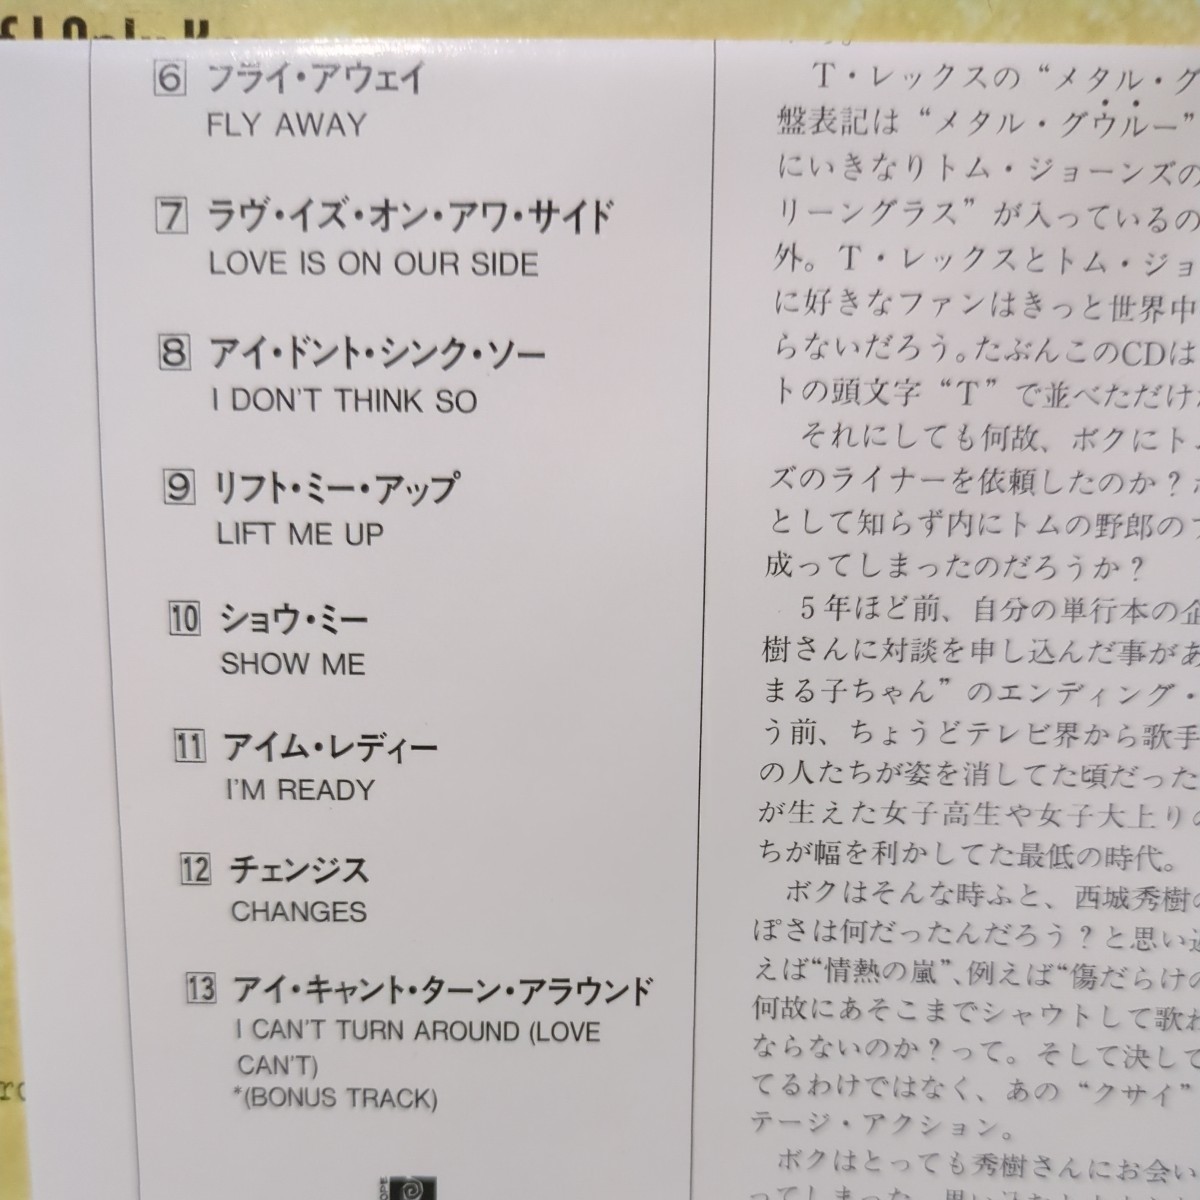 6 フライ・アウェイ
FLY AWAY
7 ラヴ・イズ・オン・アワ・サイド
LOVE IS ON OUR SIDE
8 アイ・ドント・シンク・ソー
I DON'T THINK SO
9 リフト・ミー・アップ
LIFT ME UP
10 ショウ・ミー
SHOW ME
11 アイム・レディー
I'M READY
12 チェンジス
CHANGES
13 アイ・キャント・ターン・アラウンド
I CAN'T TURN AROUND (LOVE
CAN'T)
*(BONUS TRACK)
T・レックスの“メタル・グ
盤表記は“メタル・グウルー”
にいきなりトム・ジョーンズの
リーングラス”が入っているの
外。T・レックスとトム・ジョ
に好きなファンはきっと世界中
らないだろう。たぶんこのCDは
トの頭文字“T”で並べただけ
それにしても何故、ボクにト
ズのライナーを依頼したのか？
として知らず内にトムの野郎の
成ってしまったのだろうか？
5年ほど前、自分の単行本の企
樹さんに対談を申し込んだ事があ
まる子ちゃん”のエンディング・
う前、ちょうどテレビ界から歌手
の人たちが姿を消してた頃だった
が生えた女子高生や女子大上りの
ちが幅を利かしてた最低の時代。
ボクはそんな時ふと、西城秀樹の
ぽさは何だったんだろう？と思い
えば“情熱の嵐”、例えば“傷だらけの
何故にあそこまでシャウトして歌わ
ならないのか？って。そして決して
てるわけではなく、あの“クサイ”
テージ・アクション。
ボクはとっても秀樹さんにお会い